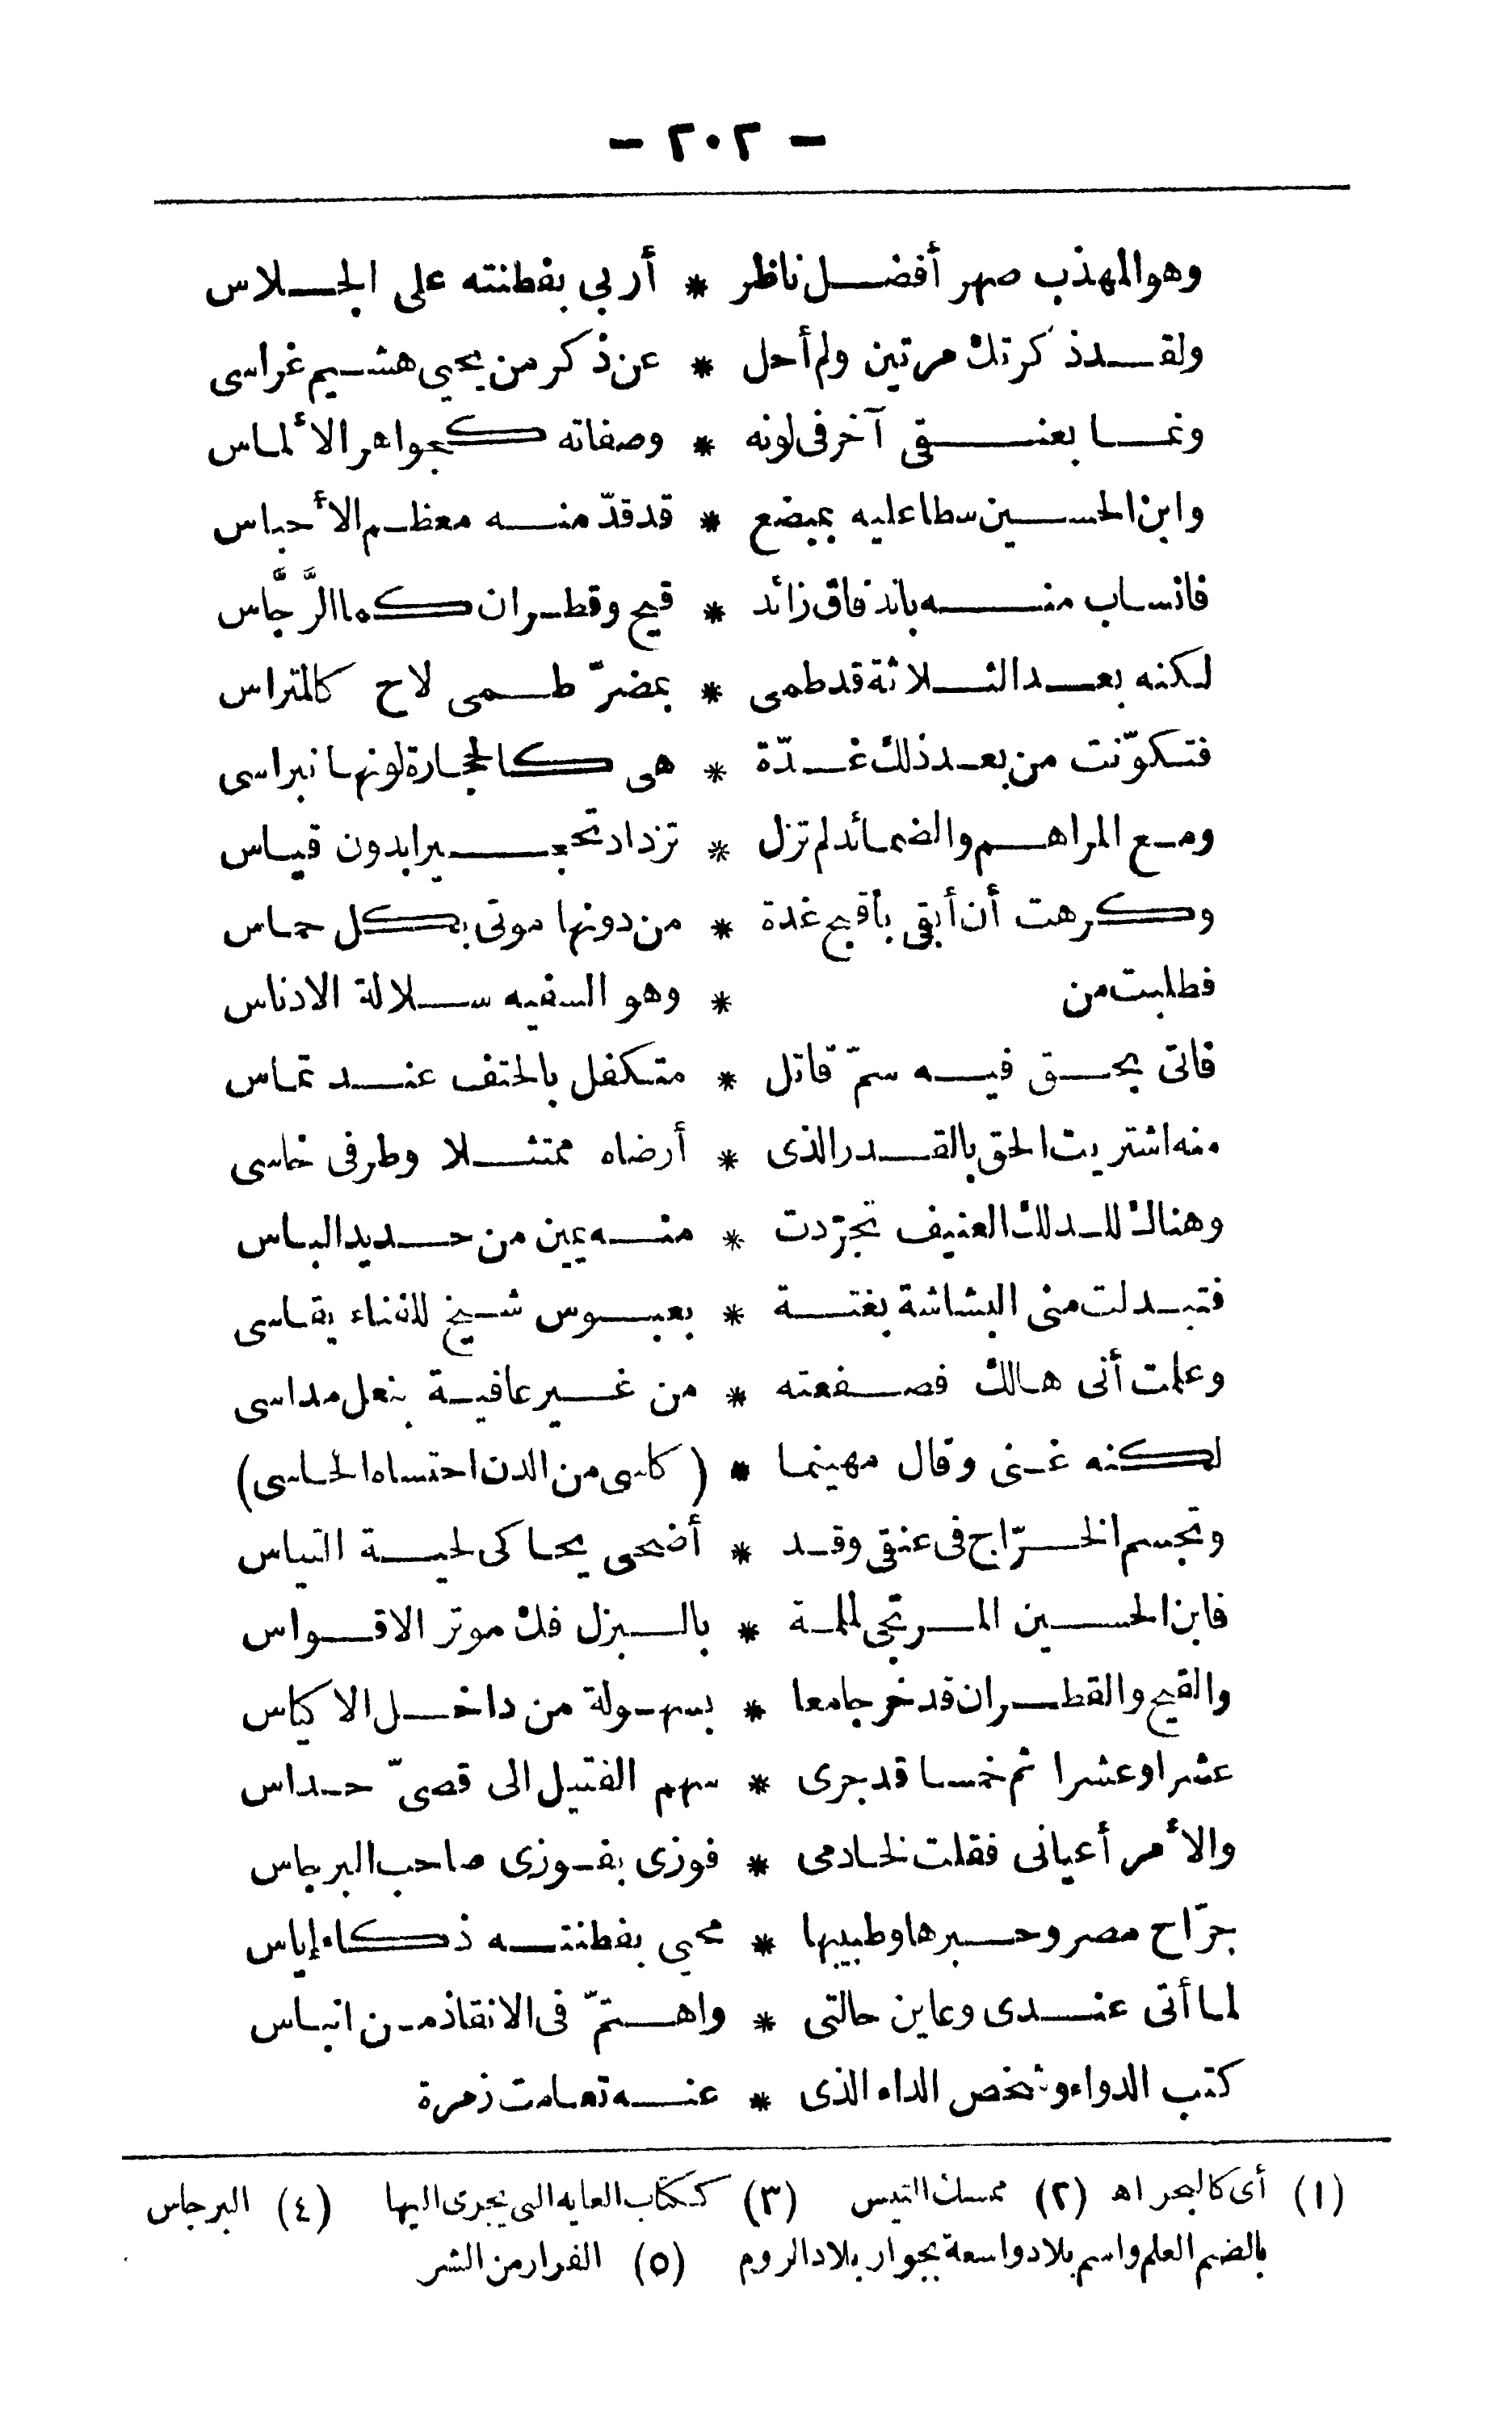 - ٢٠٢ -
وهو المهذب صهر أفضل ناظر * أربي بفطنته على الجلاس
ولقد ذكرتك مرتين ولم أحل * عن ذكر من يحيي هشيم غراسى
ونما بعنقي آخر فى لونه * وصفاته كجواهر الألماس
وابن الحسين سطا عليه بمبضع * قد قدّ منه معظم الأحباس
فانساب منه باندفاق زائد * قيح وقطران كماالرَّجَّاس
لكنه بعد الثلاثة قد طمى * بمضرّ طمى لاح كالمتراس
فتكوّنت من بعد ذلك غدّة * هى كالحجارة لونها نبراسى
ومع المراهم والضمائد لم تزل * تزداد تحجيرا بدون قياس
وكرهت أن أبقى بأقبح غدة * من دونها موتى بكل حماس
فطلبت من * وهو السفيه سلالة الادناس
فاتى بحق فيه سمّ قاتل * متكفل بالحتف عند تماس
منه اشتريت الحق بالقدر الذى * أرضاه ممتثلا وطرفى خاسى
وهناك للدلك العنيف تجرّدت * منه يمين من حديد الباس
فتبدلت منى البشاشة بغتة * بعبوس شيخ للفناء يقاسى
وعلمت أنى هالك فصفعته * من غير عافية بنعل مداسى
لكنه غنى وقال مهينما * (كاسى من الدن احتساه الحاسى)
وتجسم الخرّاج فى عنقى وقد * أضحى يحاكى لحية التياس
فابن الحسين المرتجى لملمة * بالبزل فك موتر الاقواس
والقيح والقطران قد خر جامعا * بسهولة من داخل الاكياس
عشرا وعشرا ثم خمسا قد جرى * سهم الفتيل الى قصىّ حداس
والأمر أعيانى فقلت لخادمى * فوزى بفوزى صاحب البرجاس
جرّاح مصر وحبرها وطبيبها * محيى بفطنته ذكاء إياس
لما أتى عندى وعاين حالتى * واهتمّ فى الانقاذ من انباس
كتب الدواء وشخص الداء الذى * عنه تعامت زمرة
(١) أى كالبحر اه (٢) ممسك التيس (٣) ككتاب الغايه التى يجرى اليها (٤) البرجاس
بالضم العلم واسم بلاد واسعة بجوار بلاد الروم (٥) الفرار من الشر